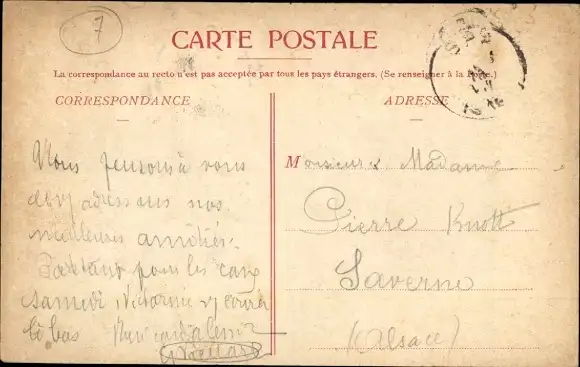 7
CARTE POSTALE
La correspondance au recto n'est pas acceptée par tous les pays étrangers. (Se renseigner à la Poste.)
CORRESPONDANCE
ADRESSE
Nous pensons à vous
adressons nos
meilleures amitiés.
Partant pour les
samedi Victorine y
là bas
Monsieur & Madame
Pierre Knott
Saverne
(Alsace)